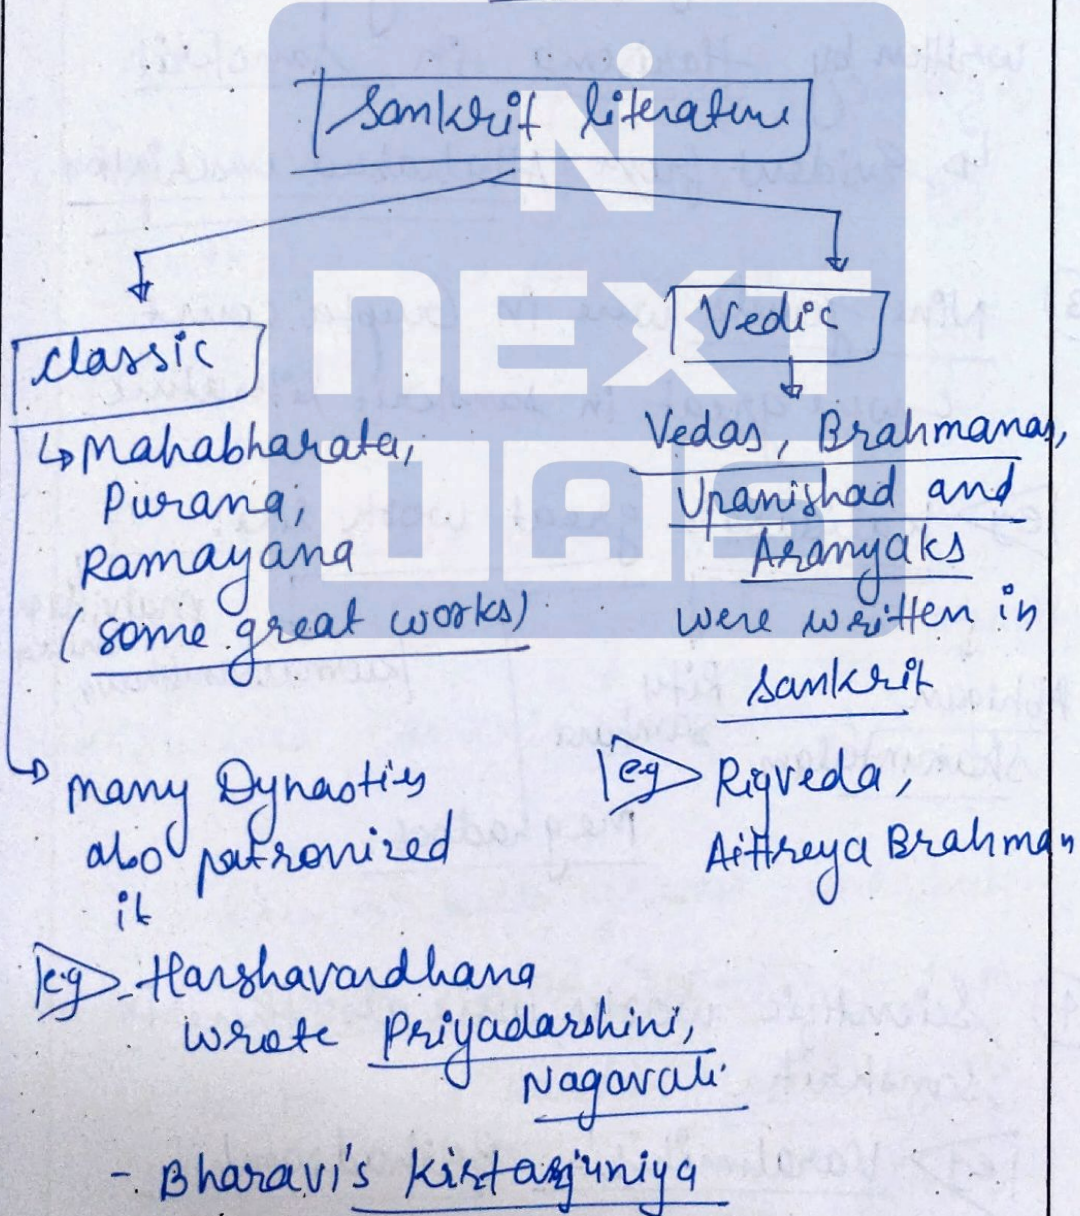 Sankrit literature
classic
Vedic
↳ Mahabharata,
Purana,
Ramayana
(some great works)
many Dynasties
also patronized
it
eg - Harshavardhana
wrote Priyadarshini,
Nagavali
- Bharavi's Kirtarjuniya
Vedas, Brahmanas,
Upanishad and
Aranyaks
were written in
sankrit
eg Rigveda,
Aittreya Brahman
N
NEXT
IAS